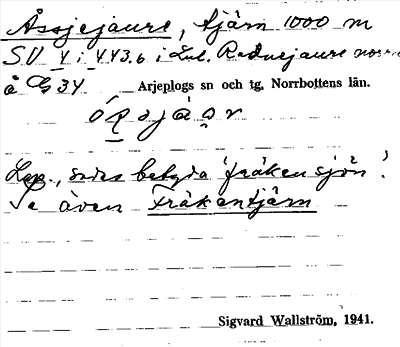 Åssjejaure, tjärn 1000 m
SV 4 i 443.6 i Lul. Rednejaure norr
å G 34 Arjeplogs sn och tg, Norrbottens län.
Lap., sades betyda 'fräkensjön'.
Se även Fräkentjärn
Sigvard Wallström, 1941.